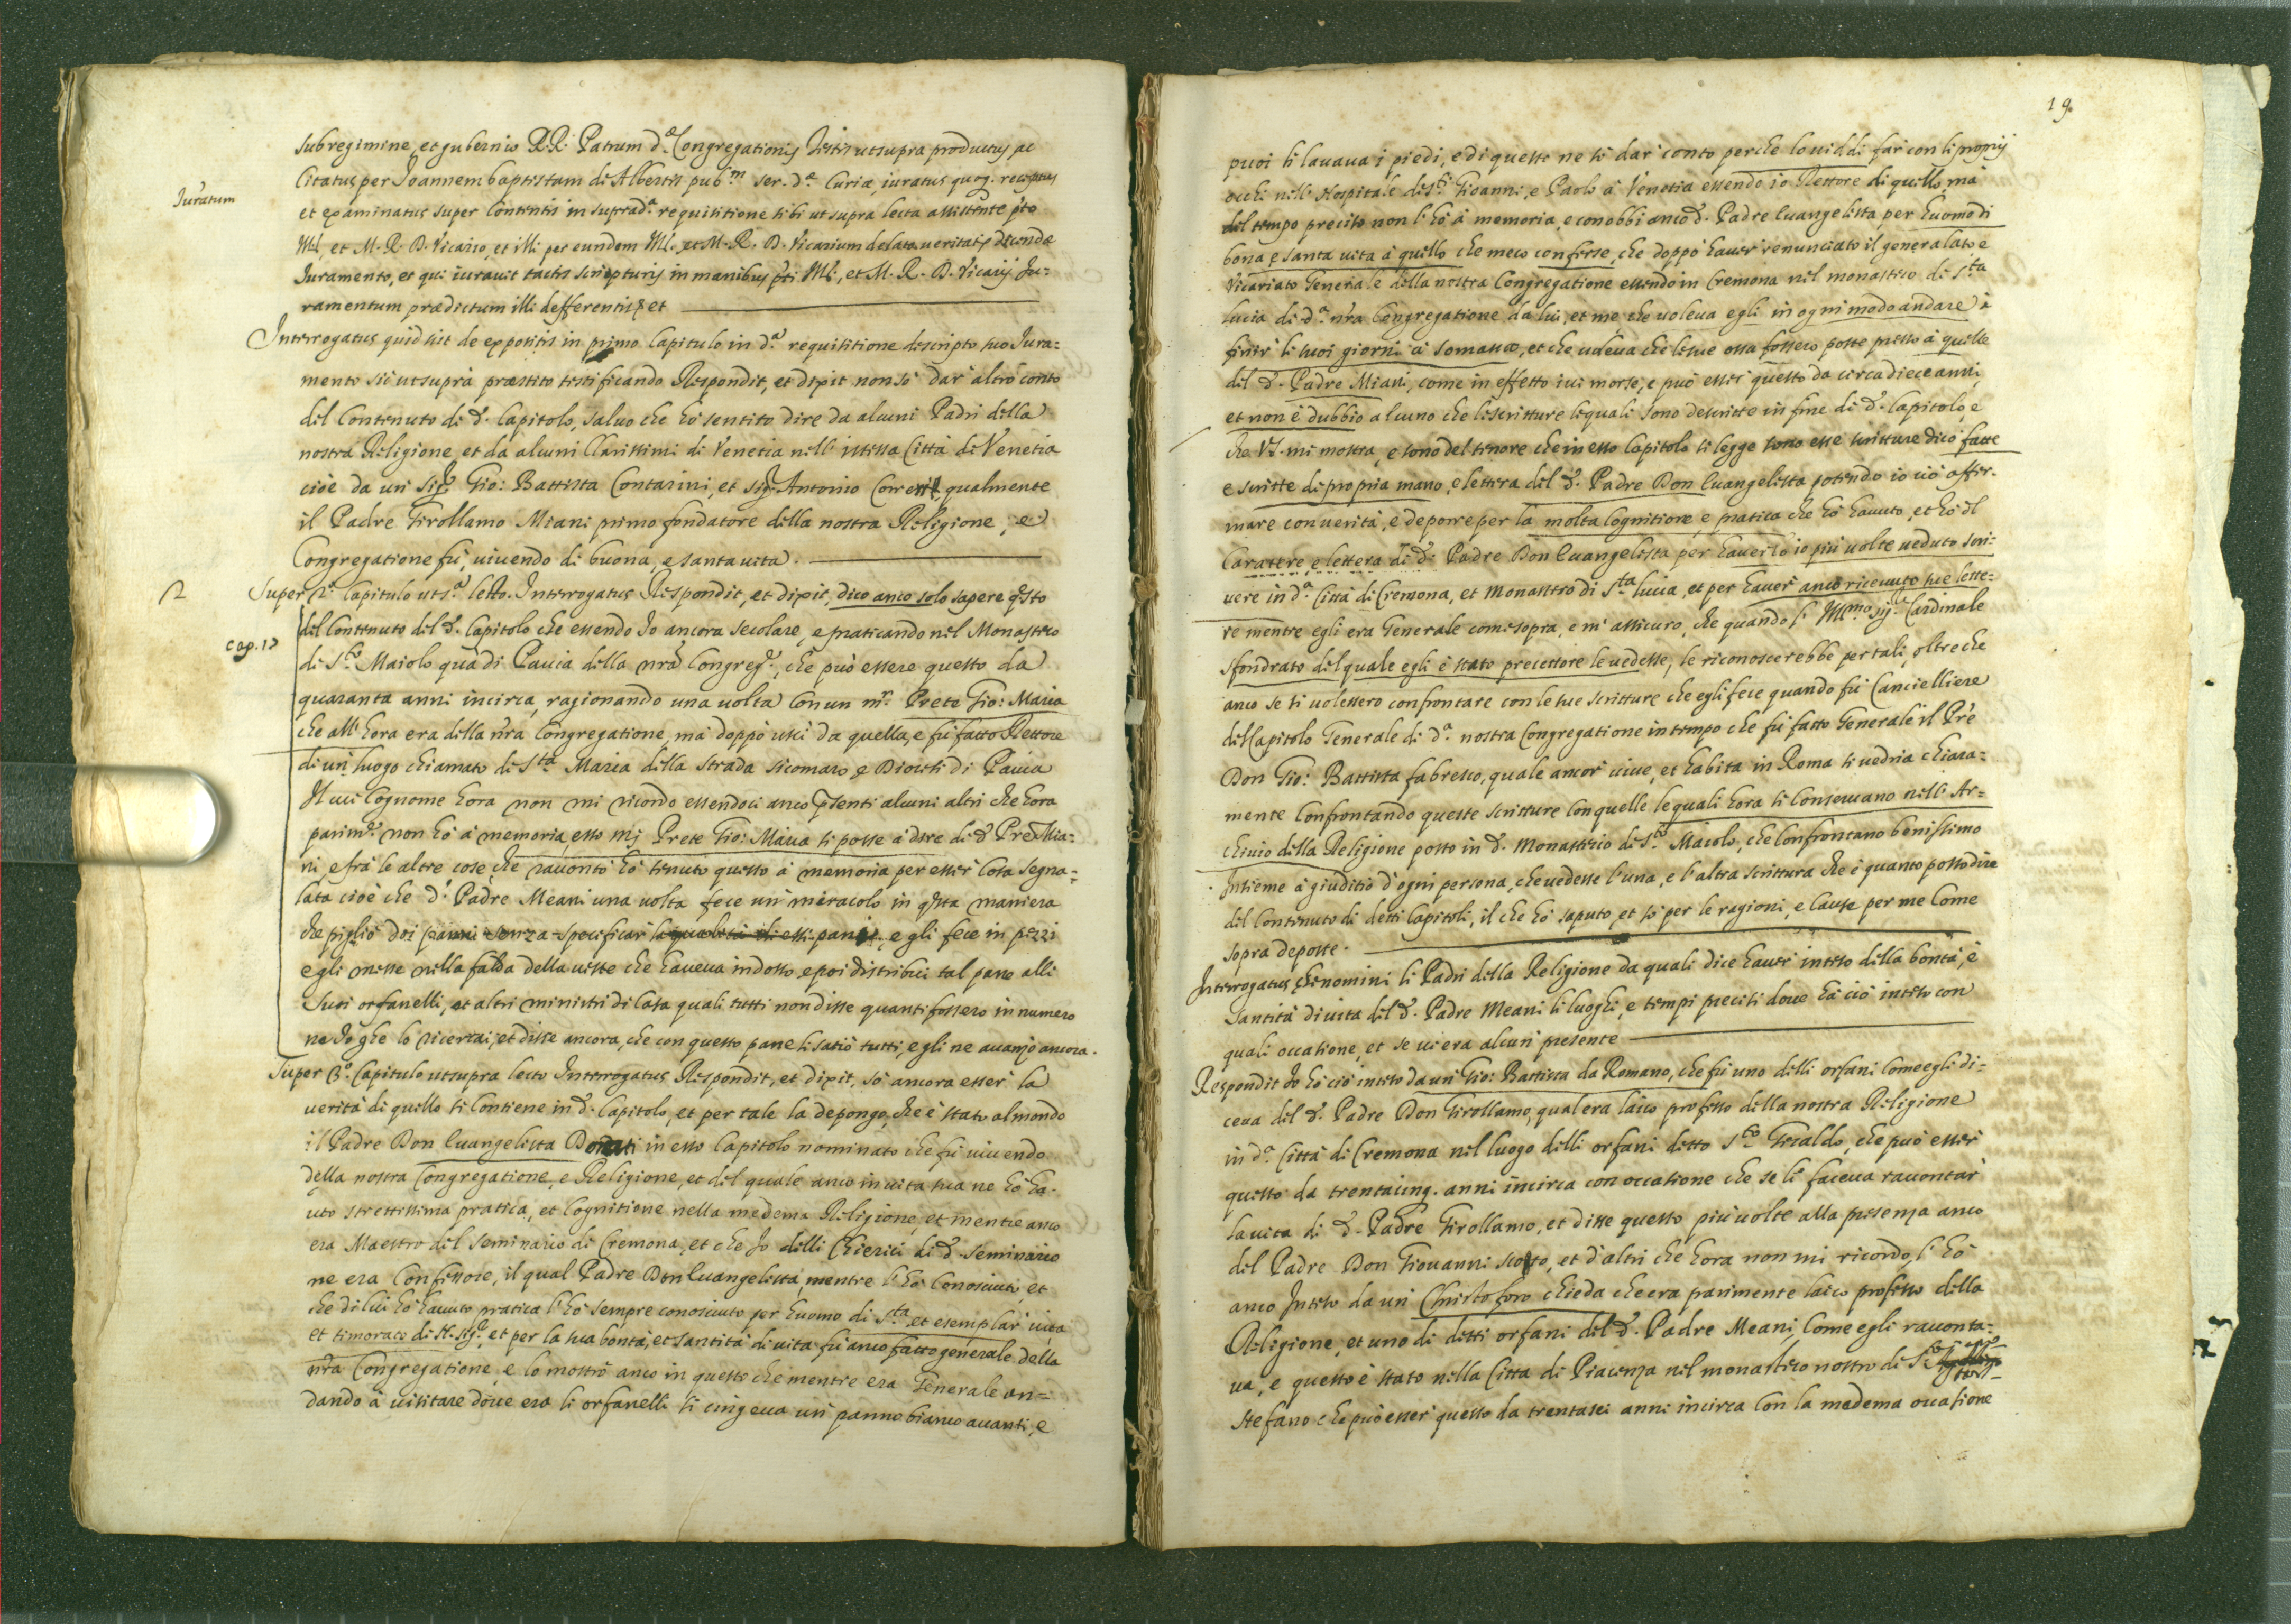 sub regimine, et gubernio R.R. Patrum d.ª Congregationis Testis ut supra productus ac
Iuratum
citatus per Joannem baptistam de Albertis pub.m ser. d.ª Curiæ, iuratus quoq. receptus
et examinatus super contentis in suprad.ª requisitione sibi ut supra lecta assistente p.to
Ml. et M. R. D. Vicario, et illi per eundem Ml. et M. R. D. Vicarium delato veritatis dicendæ
Juramento, et qui iuravit tactis scripturis in manibus p.ti Ml. et M. R. D. Vicarij Ju=
ramentum prædictum illi defferentis et
Interrogatus quid sit de expositis in primo Capitulo in d.ª requisitione descripto suo Jura=
mento sic ut supra præstito testificando Respondit, et dixit non sò dar' altro conto
del Contenuto di d. Capitolo, salvo che hò sentito dire da alcuni Padri della
nostra Religione, et da alcuni Clarissimi di Venetia nell' istessa Città di Venetia
cioè da un' Sig.r Gio: Battista Contarini, et sig.r Antonio qualmente
il Padre Girollamo Miani primo fondatore della nostra Religione, e
Congregatione fù, vivendo di buona, e santa vita.
2
Super 2.º Capitulo ut s.ª lecto. Interrogatus Respondit, et dixit, dico anco solo sapere q.sto
cap. 17
del Contenuto del d. Capitolo che essendo Io ancora secolare, e praticando nel Monastero
di S.to Maiolo quà di Pavia della nrã Congreg.e, che può essere questo da
quaranta anni incirca, ragionando una volta con un m.r Prete Gio: Maria
che all' hora era della nrã Congregatione, mà doppò uscì da quella, e fù fatto Rettore
di un' luogo chiamato di S.ta Maria della strada sicomaro e Diocesi di Pavia
Il cui Cognome hora non mi ricordo essendoci anco p̃senti alcuni altri che hora
parim.te non hò à memoria, esso mj Prete Gio: Maria si posse à dire di d. Pre Mia=
ni e frà le altre cose, che raccontò hò tenuto questo à memoria per esser' cosa segna=
lata cioè che d. Padre Meani una volta fece un' miracolo in q.sta maniera
che pigliò doi panni senza specificar la qualità di essi pani, e gli fece in pezzi
e gli messe nella falda della veste che haveva indosso, e poi distribuì tal pane alli
suoi orfanelli, et altri ministri di Casa quali tutti non disse quanti fossero in numero
ne Io che lo ricercai, et disse ancora, che con questo pane li satiò tutti, e gli ne avanzò ancora.
Super 3.º Capitulo ut supra lecto Interrogatus Respondit, et dixit, sò ancora esser' la
verità di quello si contiene in d. Capitolo, et per tale la depongo, che è stato al mondo
il Padre Don Evangelista in esso Capitolo nominato che fù vivendo
della nostra Congregatione, e Religione, et del quale anco in vita sua ne hò ha=
uto strettissima pratica, et Cognitione nella medema Religione, et mentre anco
era Maestro del Seminario di Cremona, et che Io delli Chierici di d. Seminario
ne era Confessore, il qual Padre Don Evangelista, mentre l' hò Conosciuto, et
che di lui hò havuto pratica l' hò sempre conosciuto per huomo di s.ta et esemplar vita
et timorato di N. Sig.re, et per la sua bontà, et santità di vita fù anco fatto generale della
nrã Congregatione, e lo mostrò anco in questo che mentre era Generale an=
dando à visitare dove era li orfanelli si cingeva un' panno bianco avanti, e
19
puoi li lavava i piedi, e di questo ne sò dar' conto perche lo viddi far' con li proprij
occhi nell' Hospitale de S.ti Gioanni, e Paolo à Venetia essendo io Rettore di quello, mà
del tempo preciso non l' hò à memoria, e conobbi anco d. Padre Evangelista, per huomo di
bona, e santa vita à quello che meco conferse, che doppò haver' renunciato il generalato e
Vicariato Generale della nostra Congregatione essendo in Cremona nel monastero di S.ta
Lucia di d.ª nrã Congregatione da lui, et me, che voleva egli in ogni modo andare à
finir' li suoi giorni à Somasca, et che voleva che le sue ossa fossero poste presso à quelle
del d. Padre Miani, come in effetto ivi morse, e può esser' questo da circa diece anni,
et non è dubbio alcuno che le scritture le quali sono descritte in fine di d. Capitolo, e
che V.S. mi mostra, e sono del tenore che in esso Capitolo si legge sono esse scritture dicò fatte
e scritte di propria mano, e lettera del d. Padre Don Evangelista potendo io ciò affer=
mare con verità, e deporre per la molta Cognitione, e pratica che hò havuto, et hò del
Carattere, e lettera di d. Padre Don Evangelista per haverlo io più volte veduto scri=
vere in d.ª Città di Cremona, et Monastero di S.ta Lucia, et per haver' anco ricevuto sue lette=
re mentre egli era Generale come sopra, e m' assicuro, che quando l' Ill.mo sig.r Cardinale
Sfondrato del quale egli è stato precettore le vedesse, le riconoscerebbe per tali, oltre che
anco se si volessero confrontare con le sue scritture che egli fece quando fù Cancielliere
del Capitolo Generale di d.ª nostra Congregatione in tempo che fù fatto Generale il Prẽ
Don Gio: Battista fabresco, quale ancor' vive, et habita in Roma si vedria chiara=
mente Confrontando queste scritture con quelle le quali hora si Conservano nell' Ar=
chivio della Religione posto in d. Monastero di S.to Maiolo, che Confrontano benissimo
Insieme à giuditio d' ogni persona, che vedesse l' una, e l' altra scrittura che è quanto posso dire
del Contenuto di detti Capitoli, il che hò saputo, et sò per le ragioni, e cause per me come
sopra deposte.
Interrogatus che nomini li Padri della Religione da quali dice haver' inteso della bontà, e
santità di vita del d. Padre Meani li luoghi, e tempi precisi dove hà ciò inteso con
quali occasione, et se vi era alcun' presente
Respondit Io hò ciò inteso da un' Gio: Battista da Romano, che fù uno delli orfani come egli di=
ceva del d. Padre Don Girollamo, qual era laico professo della nostra Religione
in d.ª Città di Cremona nel luogo delli orfani detto S.to Geraldo, che può esser'
questo da trentacinq. anni incirca con occasione che se li faceva raccontar'
la vita di d. Padre Girollamo, et disse questo più volte alla presenza anco
del Padre Don Giovanni scotto, et d' altri che hora non mi ricordo, l' hò
anco Inteso da un' Christoforo chieda che era parimente laico professo della
Religione, et uno di detti orfani del d. Padre Meani, Come egli racconta=
va, e questo è stato nella Città di Piacenza nel monastero nostro di S.to
Stefano che può esser' questo da trentasei anni incirca con la medema occasione